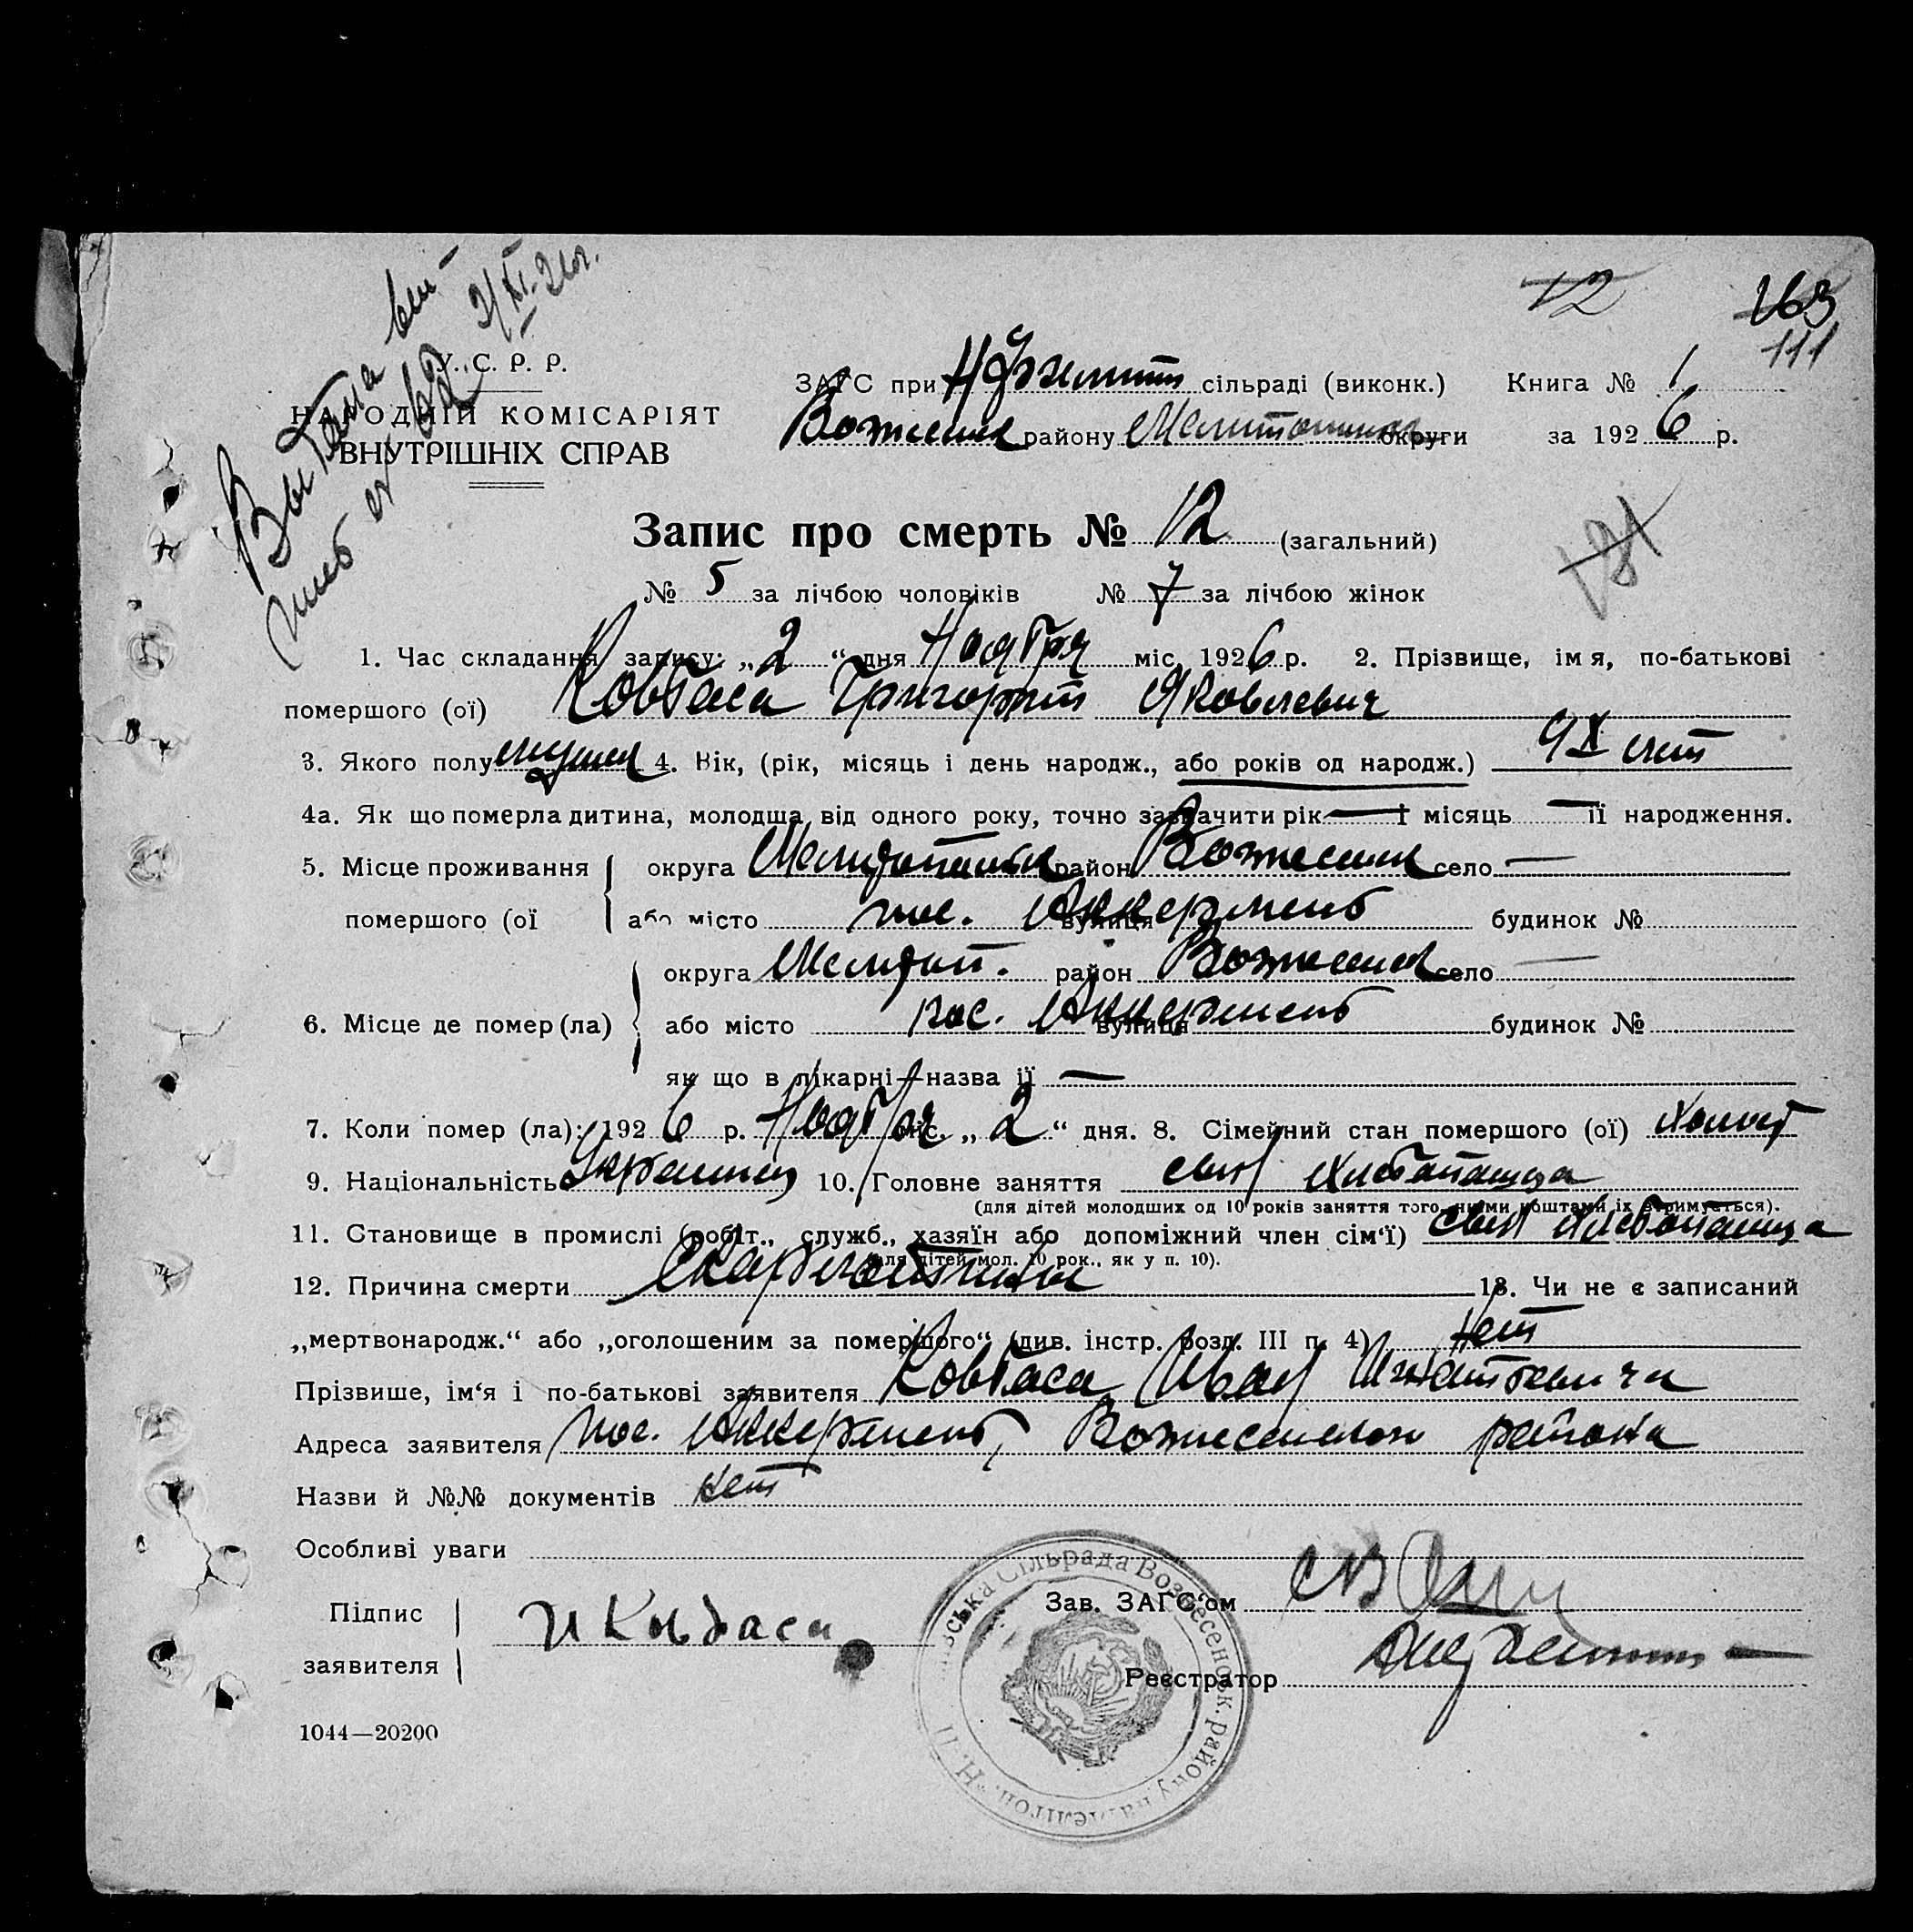 12
163
111
Выдана вы-
пись за № 62 2/XI-26г.
У. С. Р. Р.
НАРОДНІЙ КОМІСАРІЯТ
ВНУТРІШНІХ СПРАВ
ЗАГС при сільраді (виконк.) Книга № 1
Вознесенск району Мелитопольск округи за 1926 р.
Запис про смерть № 12 (загальний)
181
№ 5 за лічбою чоловіків № 7 за лічбою жінок
1. Час складання запису: „2“ дня Ноября міс. 1926 р. 2. Прізвище, ім я, по-батькові
помершого (ої) Ковбаса Григорий Яковлевич
3. Якого полу мужск 4. Вік, (рік, місяць і день народж., або років од народж.) лет
4а. Як що померла дитина, молодша від одного року, точно зазначити рік — і місяць — її народження.
5. Місце проживання округа Мелитопольск район Вознесенск село —
помершого (ої або місто пос. Аккермень вулиця будинок №
округа Мелитоп. район Вознесенск село —
6. Місце де помер (ла) або місто пос. Аккермень вулиця будинок №
як що в лікарні—назва її —
7. Коли помер (ла): 1926 р. Ноября міс. „2“ дня. 8. Сімейний стан помершого (ої) холост
9. Національність Украинец 10. Головне заняття сын хлебопашца
(для дітей молодших од 10 років заняття того, чиїми коштами їх втримується).
11. Становище в промислі (робіт., служб., хазяїн або допоміжний член сім‘ї) сын хлебопашца
(для дітей мол. 10 рок., як у п. 10).
12. Причина смерти Скарлатины 13. Чи не є записаний
„мертвонародж.“ або „оголошеним за помершого“ (див. інстр. розд. III п. 4) Нет
Прізвише, ім‘я і по-батькові заявителя Ковбаса Иван Игнатьевича
Адреса заявителя пос. Аккермень, Вознесенского района
Назви й №№ документів нет
Особливі уваги
Підпис
заявителя И Ковбаса
Зав. ЗАГС‘ом
Реєстратор
ська Сільрада Вознесенськ. району на Мелітоп.
1044—20200